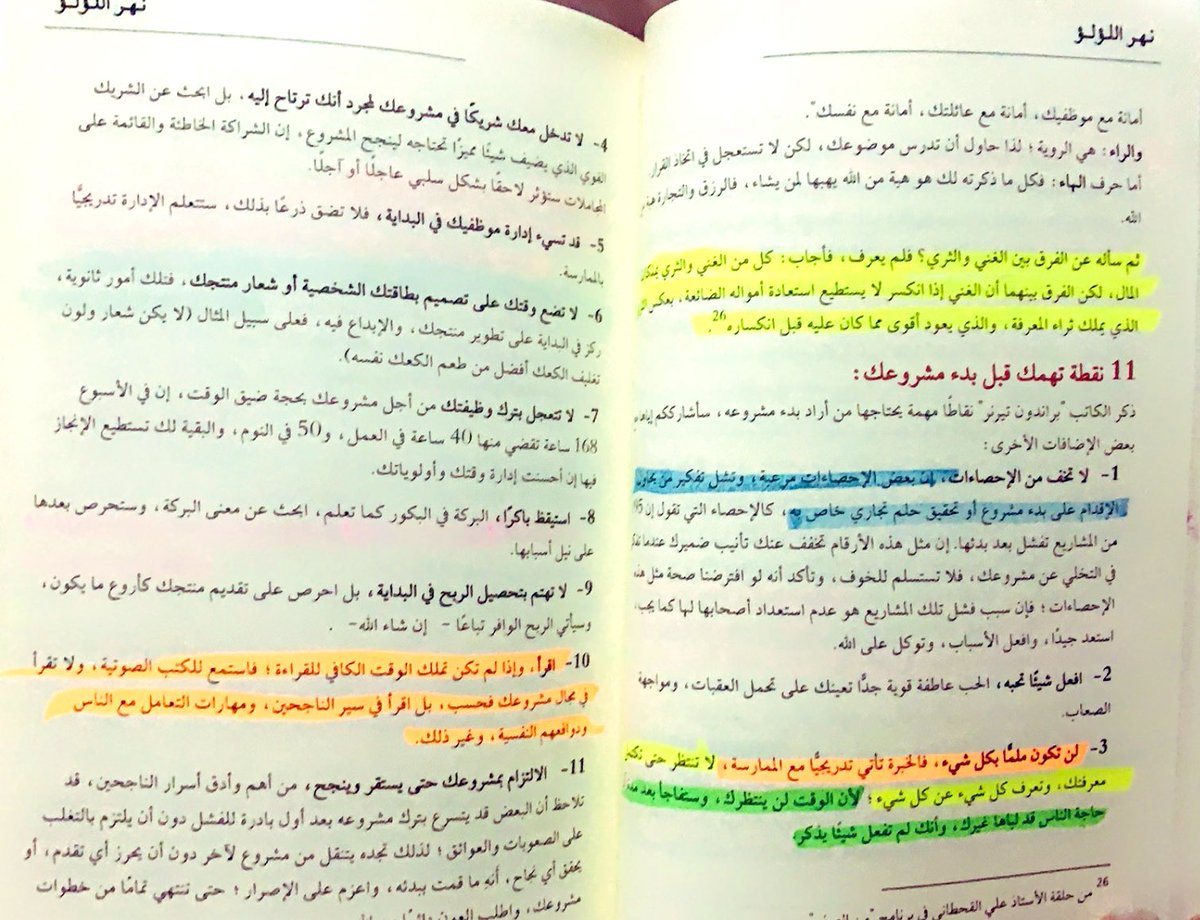 نهر اللؤلؤ
أمانة مع موظفيك، أمانة مع عائلتك، أمانة مع نفسك".
والراء: هي الروية؛ لذا حاول أن تدرس موضوعك، لكن لا تستعجل في اتخاذ القرار
أما حرف الهاء: فكل ما ذكرته لك هو هبة من الله يهبها لمن يشاء، فالرزق والتجارة هبة
الله.
ثم سأله عن الفرق بين الغني والثري؟ فلم يعرف، فأجاب: كل من الغني والثري
المال، لكن الفرق بينهما أن الغني إذا انكسر لا يستطيع استعادة أمواله الضائعة، بعكس
الذي يملك ثراء المعرفة، والذي يعود أقوى مما كان عليه قبل انكساره26.
11 نقطة تهمك قبل بدء مشروعك:
ذكر الكاتب "براندون تيرنر" نقاطًا مهمة يحتاجها من أراد بدء مشروعه، سأشارككم
بعض الإضافات الأخرى:
1- لا تخف من الإحصاءات، إن بعض الإحصاءات مرعبة، وتشل تفكير من
الإقدام على بدء مشروع أو تحقيق حلم تجاري خاص به، كالإحصاء التي تقول إن
من المشاريع تفشل بعد بدئها. إن مثل هذه الأرقام تخفف عنك تأنيب ضميرك عندما
في التخلي عن مشروعك، فلا تستسلم للخوف، وتأكد أنه لو افترضنا صحة مثل
الإحصاءات؛ فإن سبب فشل تلك المشاريع هو عدم استعداد أصحابها لها كما يجب،
استعد جيدًا، وافعل الأسباب، وتوكل على الله.
2- افعل شيئًا تحبه، الحب عاطفة قوية جدًّا تعينك على تحمل العقبات، ومواجهة
الصعاب.
3- لن تكون ملمًّا بكل شيء، فالخبرة تأتي تدريجيًّا مع الممارسة، لا تنتظر حتى
معرفتك، وتعرف كل شيء عن كل شيء؛ لأن الوقت لن ينتظرك، وستفاجأ بعد
حاجة الناس قد لباها غيرك، وأنك لم تفعل شيئًا يذكر.
26 من حلقة الأستاذ علي القحطاني في برنامج
نهر اللؤلؤ
4- لا تدخل معك شريكًا في مشروعك لمجرد أنك ترتاح إليه، بل ابحث عن الشريك
القوي الذي يضيف شيئًا مميزًا تحتاجه لينجح المشروع، إن الشراكة الخاطئة والقائمة على
المجاملات ستؤثر لاحقًا بشكل سلبي عاجلًا أو آجلًا.
5- قد تسيء إدارة موظفيك في البداية، فلا تضق ذرعًا بذلك، ستتعلم الإدارة تدريجيًّا
بالممارسة.
6- لا تضع وقتك على تصميم بطاقتك الشخصية أو شعار منتجك، فتلك أمور ثانوية،
ركز في البداية على تطوير منتجك، والإبداع فيه، فعلى سبيل المثال (لا يكن شعار ولون
تغليف الكعك أفضل من طعم الكعك نفسه).
7- لا تتعجل بترك وظيفتك من أجل مشروعك بحجة ضيق الوقت، إن في الأسبوع
168 ساعة تقضي منها 40 ساعة في العمل، و50 في النوم، والبقية لك تستطيع الإنجاز
فيها إن أحسنت إدارة وقتك وأولوياتك.
8- استيقظ باكرًا، البركة في البكور كما تعلم، ابحث عن معنى البركة، وستحرص بعدها
على نيل أسبابها.
9- لا تهتم بتحصيل الربح في البداية، بل احرص على تقديم منتجك كأروع ما يكون،
وسيأتي الربح الوافر تباعًا - إن شاء الله-.
10- اقرأ، وإذا لم تكن تملك الوقت الكافي للقراءة؛ فاستمع للكتب الصوتية، ولا تقرأ
في مجال مشروعك فحسب، بل اقرأ في سير الناجحين، ومهارات التعامل مع الناس
ودوافعهم النفسية، وغير ذلك.
11- الالتزام بمشروعك حتى يستقر وينجح، من أهم وأدق أسرار الناجحين، قد
تلاحظ أن البعض قد يتسرع بترك مشروعه بعد أول بادرة للفشل دون أن يلتزم بالتغلب
على الصعوبات والعوائق؛ لذلك تجده يتنقل من مشروع لآخر دون أن يحرز أي تقدم، أو
يحقق أي نجاح. أنهِ ما قمت ببدئه، واعزم على الإصرار؛ حتى تنتهي تمامًا من خطوات
مشروعك، واطلب العون